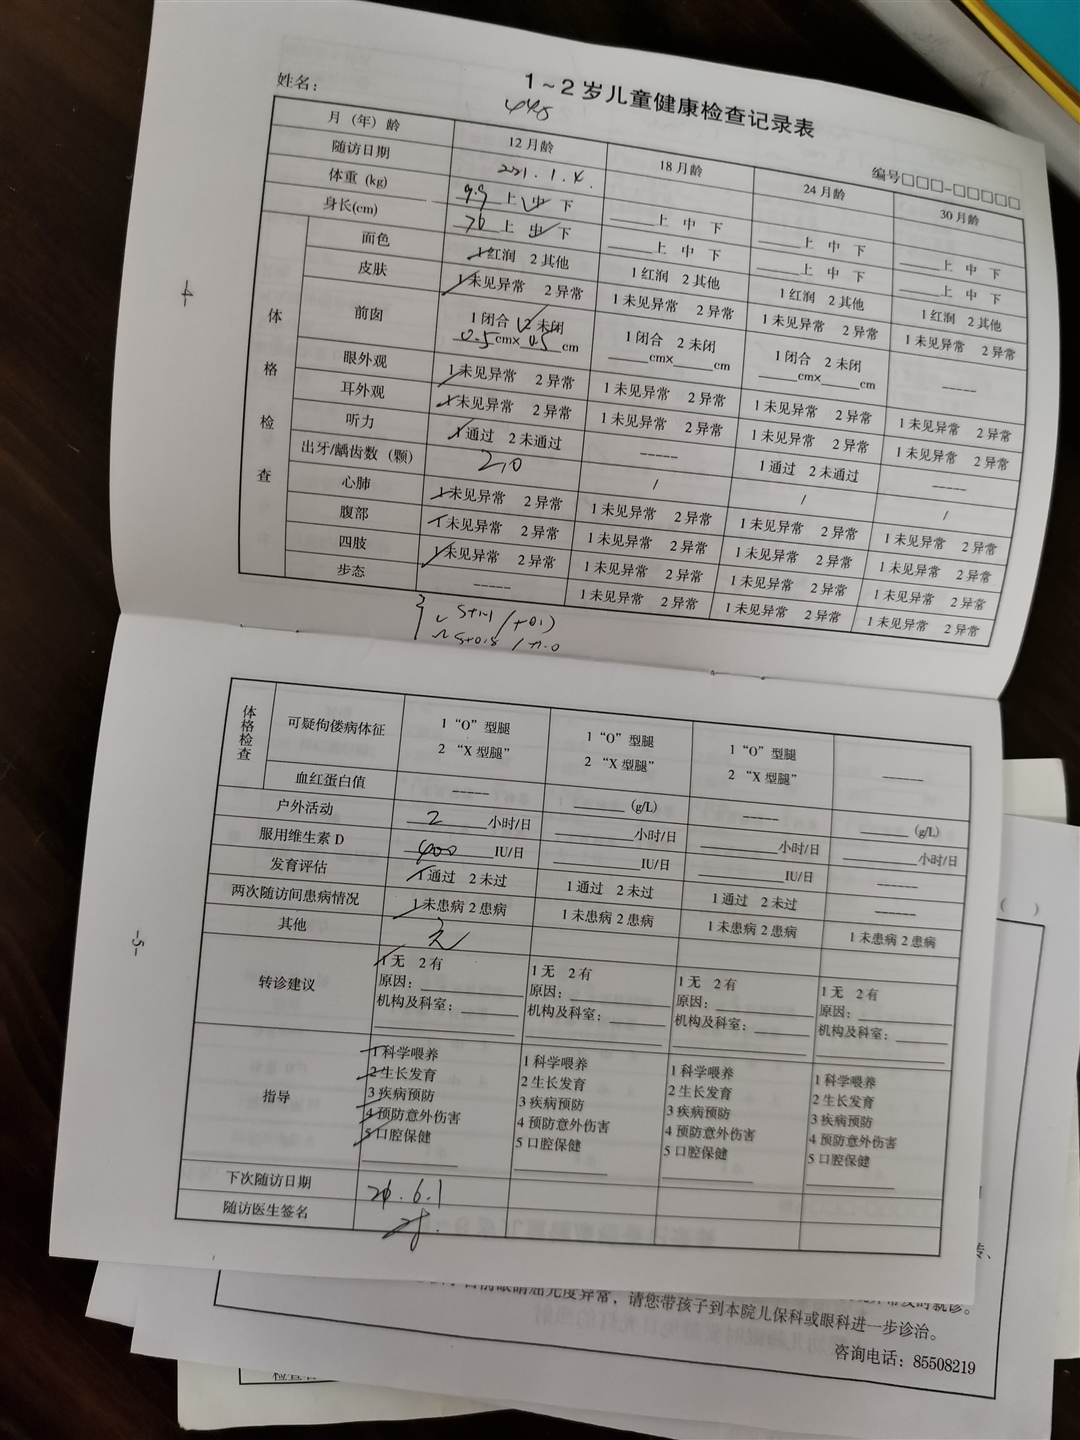 1~2岁儿童健康检查记录表
姓名：
编号□□□-□□□□□
月（年）龄 12月龄 18月龄 24月龄 30月龄
随访日期 2021.1.4.
体重 (kg) 9.9 上 中 下 上 中 下 上 中 下 上 中 下
身长(cm) 76 上 中 下 上 中 下 上 中 下 上 中 下
体格检查
面色 1红润 2其他 1红润 2其他 1红润 2其他 1红润 2其他
皮肤 1未见异常 2异常 1未见异常 2异常 1未见异常 2异常 1未见异常 2异常
前囟 1闭合 2未闭 1闭合 2未闭 1闭合 2未闭 -----
0.5cm×0.5cm cm×cm cm×cm
眼外观 1未见异常 2异常 1未见异常 2异常 1未见异常 2异常 1未见异常 2异常
耳外观 1未见异常 2异常 1未见异常 2异常 1未见异常 2异常 1未见异常 2异常
听力 1通过 2未通过 ----- 1通过 2未通过 -----
出牙/龋齿数（颗） 2/0 / / /
心肺 1未见异常 2异常 1未见异常 2异常 1未见异常 2异常 1未见异常 2异常
腹部 1未见异常 2异常 1未见异常 2异常 1未见异常 2异常 1未见异常 2异常
四肢 1未见异常 2异常 1未见异常 2异常 1未见异常 2异常 1未见异常 2异常
步态 ----- 1未见异常 2异常 1未见异常 2异常 1未见异常 2异常
-4-
体格检查
可疑佝偻病体征 1“O”型腿 1“O”型腿 1“O”型腿 -----
2“X型腿” 2“X型腿” 2“X型腿”
血红蛋白值 ----- (g/L) ----- (g/L)
户外活动 2小时/日 小时/日 小时/日 小时/日
服用维生素D 400IU/日 IU/日 IU/日 -----
发育评估 1通过 2未过 1通过 2未过 1通过 2未过 -----
两次随访间患病情况 1未患病2患病 1未患病2患病 1未患病2患病 1未患病2患病
其他 无
转诊建议 1无 2有 1无 2有 1无 2有 1无 2有
原因： 原因： 原因： 原因：
机构及科室： 机构及科室： 机构及科室： 机构及科室：
指导
1科学喂养 1科学喂养 1科学喂养 1科学喂养
2生长发育 2生长发育 2生长发育 2生长发育
3疾病预防 3疾病预防 3疾病预防 3疾病预防
4预防意外伤害 4预防意外伤害 4预防意外伤害 4预防意外伤害
5口腔保健 5口腔保健 5口腔保健 5口腔保健
下次随访日期 21.6.1
随访医生签名
-5-
目前眼睛屈光度异常，请您带孩子到本院儿保科或眼科进一步诊治。
咨询电话：85508219